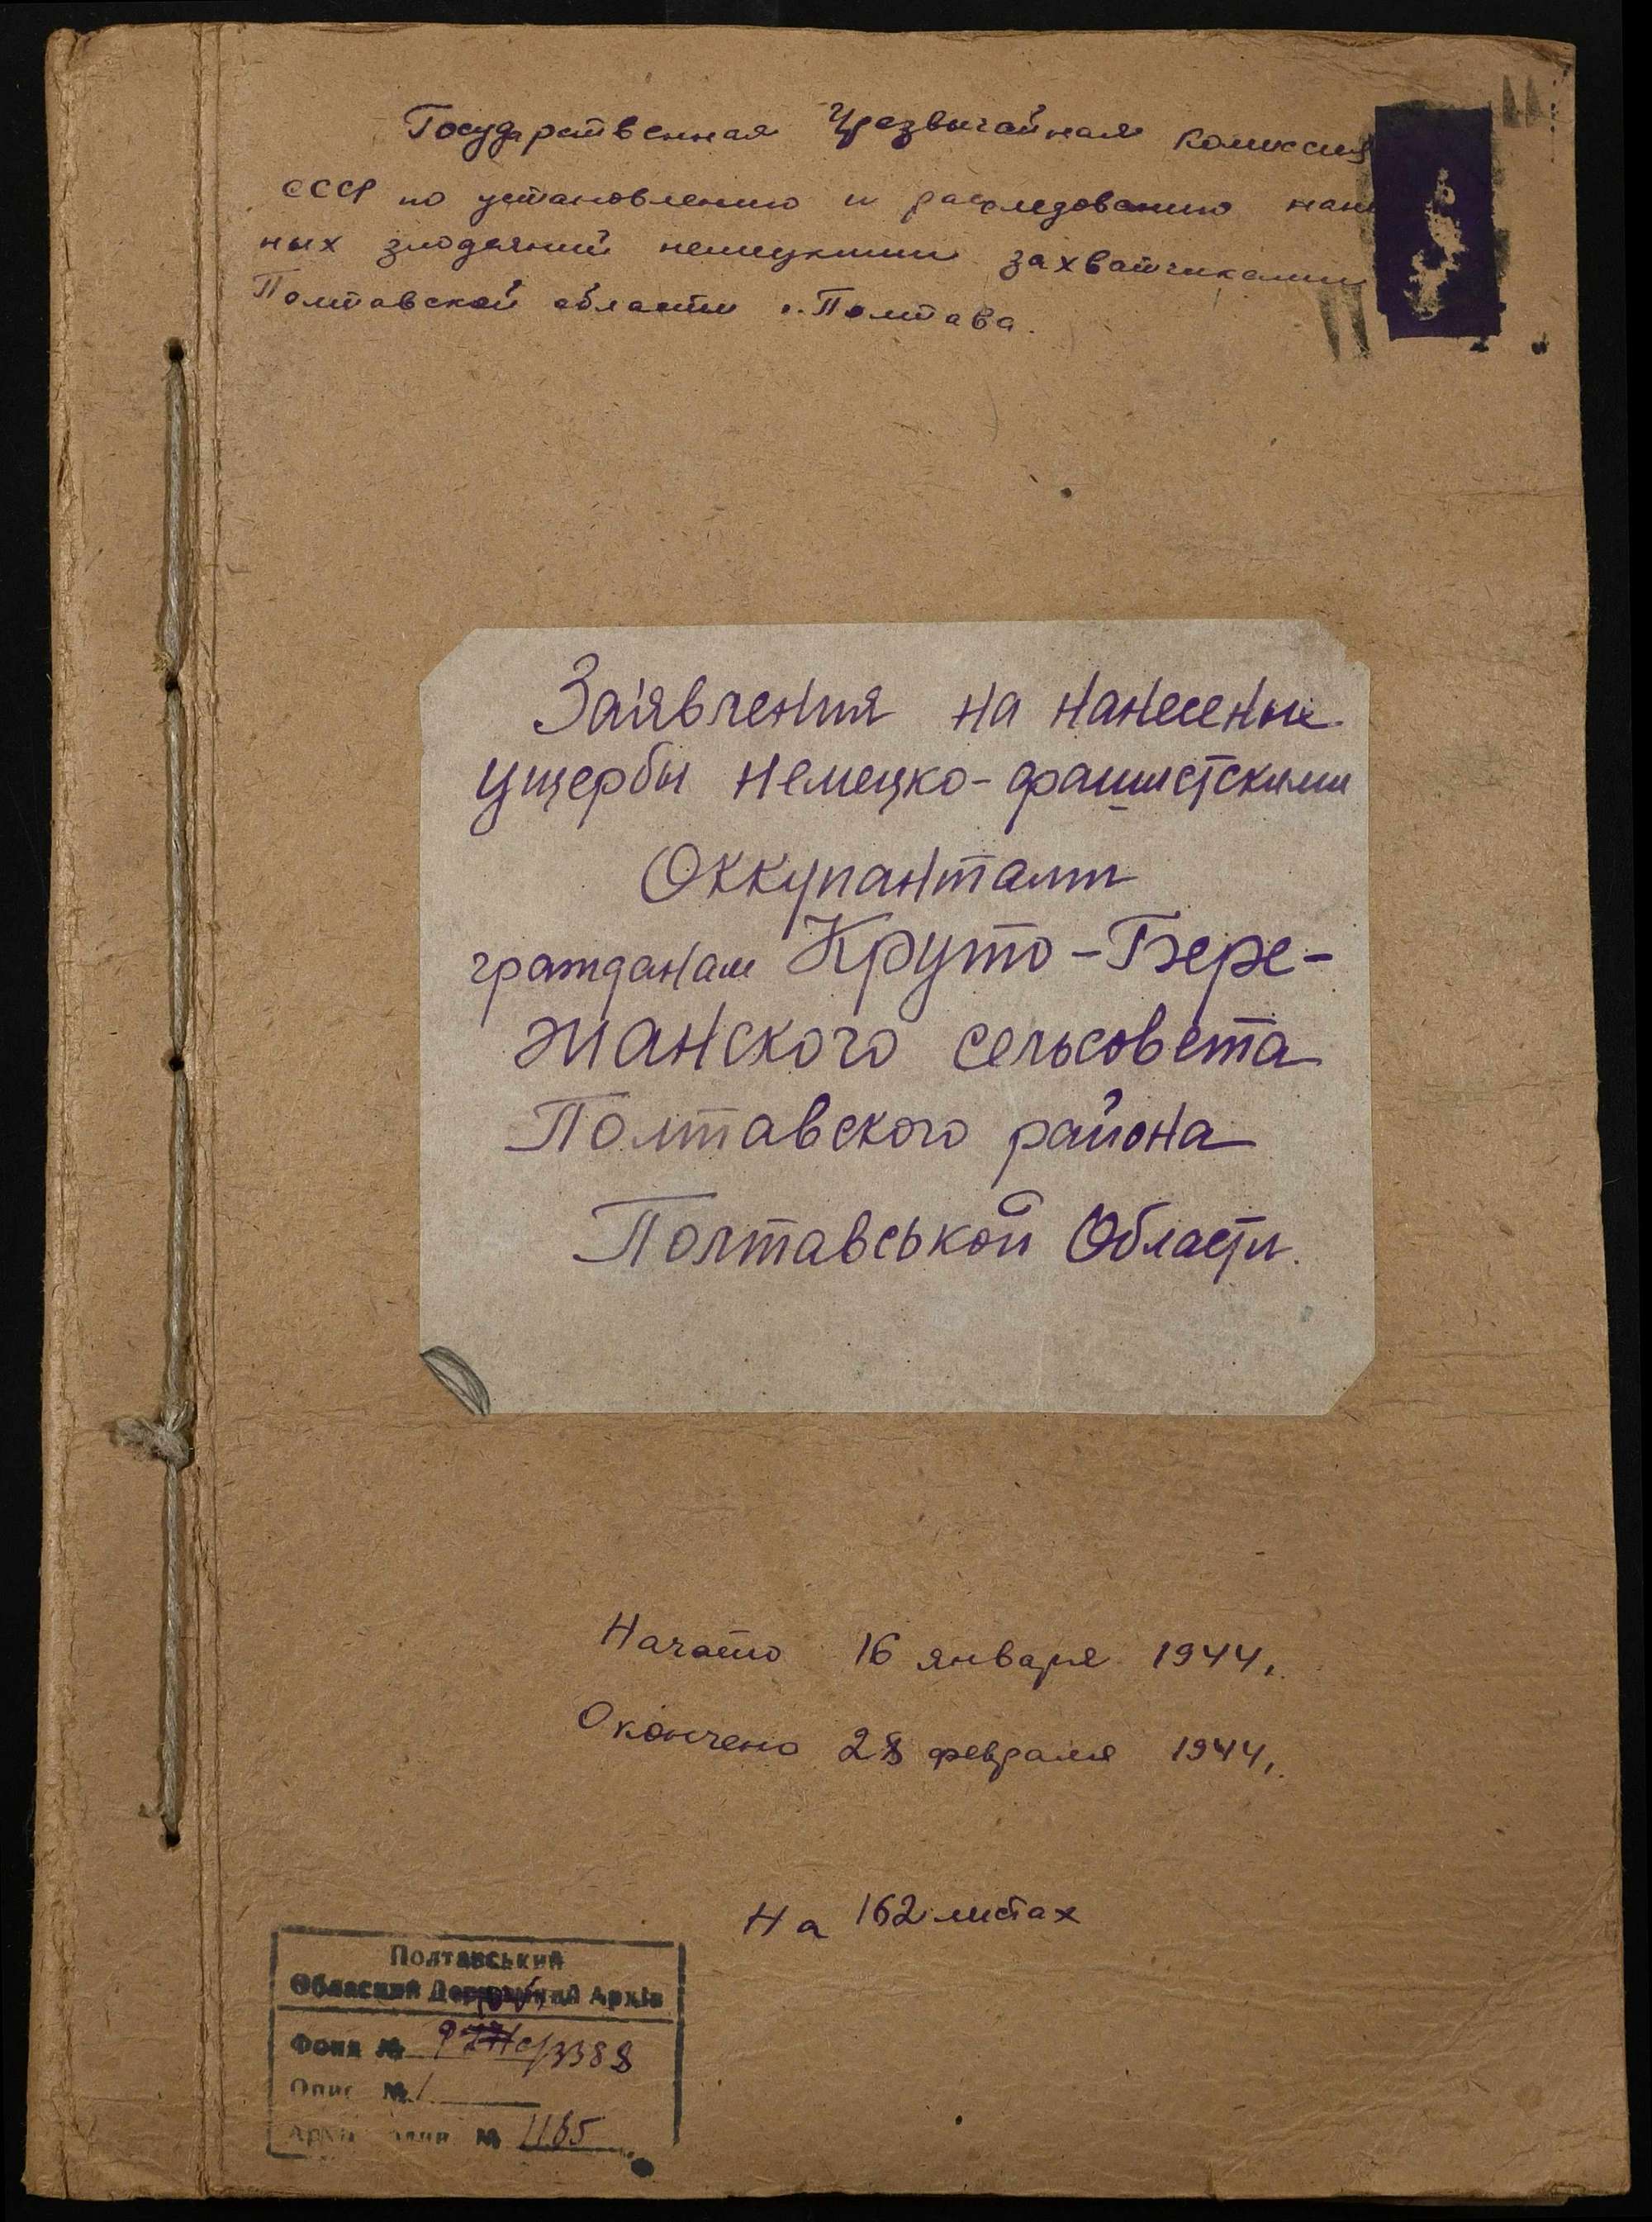 Государственная Чрезвычайная комиссия
СССР по установлению и расследованию нане
ных злодеяний немецкими захватчиками
Полтавской области г. Полтава.
Заявления на нанесеные
ущербы немецко-фашистскими
Оккупантами
гражданам Круто-Бере-
жанского сельсовета
Полтавского района
Полтавськой Области.
Начато 16 января 1944г.
Окончено 28 февраля 1944г.
На 162 листах
Полтавський
Обласний Державний Архів
Фонд № /3388
Опис № 1
№ 1165